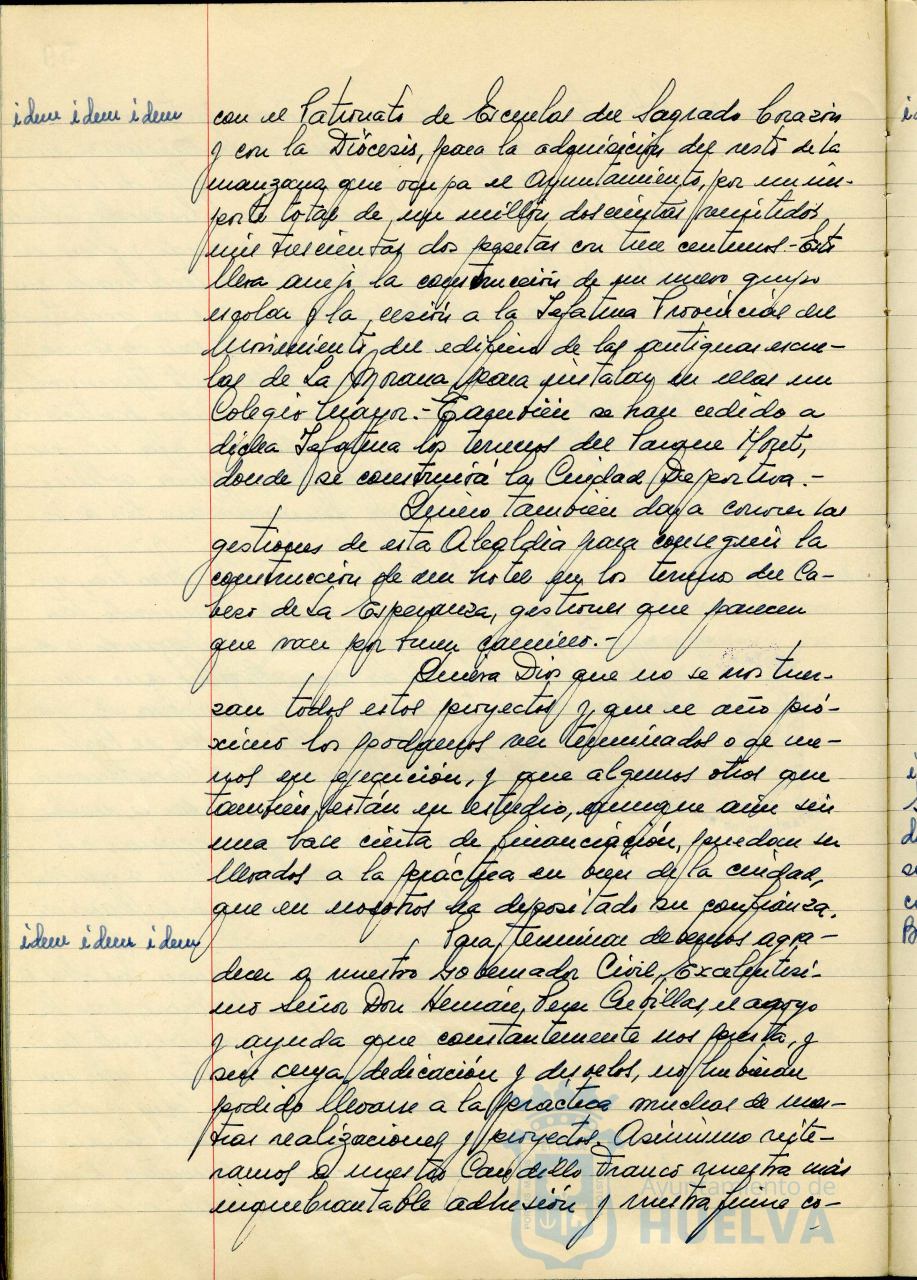 idem idem idem
con el Patronato de Escuelas del Sagrado Corazón
y con la Diócesis, para la adquisición del resto de la
manzana que ocupa el Ayuntamiento, por un im-
porte total de un millón doscientas veintidos
mil trescientas dos pesetas con trece centimos.- Esto
lleva anejo la construcción de un nuevo grupo
escolar y la cesión a la Jefatura Provincial del
Movimiento del edificio de las antiguas escue-
las de La Morana para instalar en ellas un
Colegio Mayor.- También se han cedido a
dicha Jefatura los terrenos del Parque Moret,
donde se construirá la Ciudad Deportiva.-
Quiero también daros a conocer las
gestiones de esta Alcaldía para conseguir la
construcción de un hotel en los terrenos del Ca-
bezo de La Esperanza, gestiones que parecen
que van por buen camino.-
Quiera Dios que no se nos tuer-
zan todos estos proyectos y que el año pró-
ximo los podamos ver terminados o al me-
nos en ejecución, y que algunos otros que
también están en estudio, aunque aún sin
una base cierta de financiación, puedan ser
llevados a la práctica en bien de la ciudad,
que en nosotros ha depositado su confianza.
idem idem idem
Para terminar debemos agra-
decer a nuestro Gobernador Civil, Excelentísi-
mo Señor Don Hernán Perez Cubillas, el apoyo
y ayuda que constantemente nos presta, y
sin cuya dedicación y desvelos, no hubieran
podido llevarse a la práctica muchas de nues-
tras realizaciones y proyectos. Asimismo reite-
ramos a nuestro Caudillo Franco nuestra más
inquebrantable adhesión y nuestra firme co-
Ayuntamiento de
HUELVA